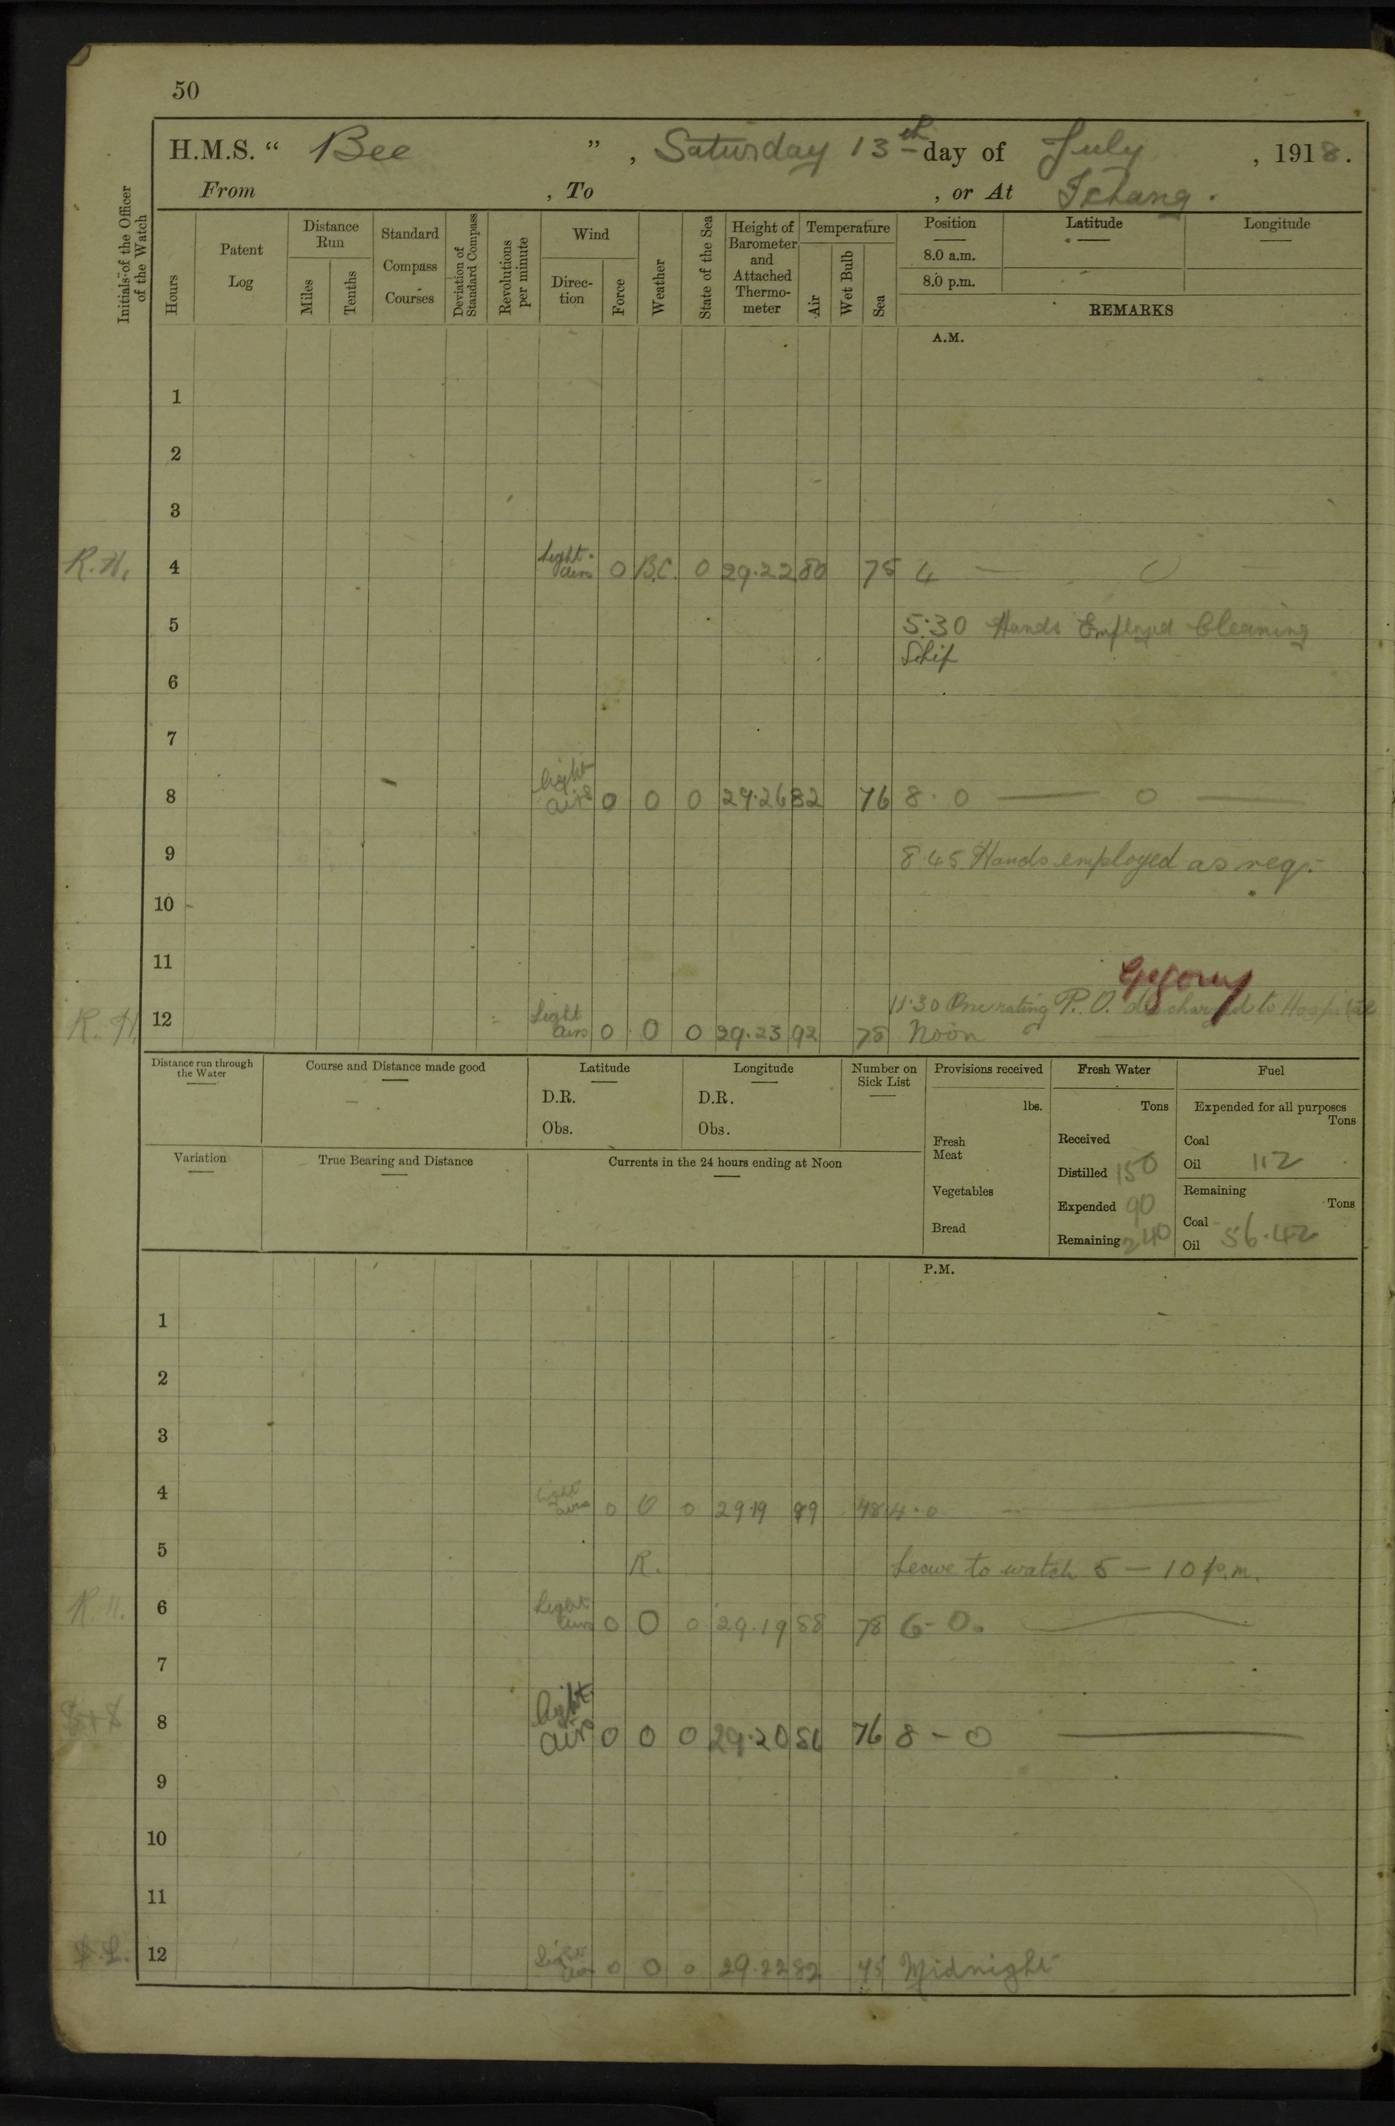 50
H.M.S. “ Bee ” , Saturday 13th day of July , 1918.
From , To , or At Ichang.
Initials of the Officer of the Watch
Hours
Patent Log
Distance Run
Miles
Tenths
Standard Compass Courses
Deviation of Standard Compass
Revolutions per minute
Wind
Direction
Force
Weather
State of the Sea
Height of Barometer and Attached Thermometer
Temperature
Air
Wet Bulb
Sea
Position Latitude Longitude
8.0 a.m.
8.0 p.m.
REMARKS
A.M.
1
2
3
R.H. 4 Light airs 0 B.C. 0 29.22 80 75 4
5 5.30 Hands Employed Cleaning
Ship
6
7
8 light airs 0 0 0 29.26 82 76 8.0 — 0 —
9 8.45 Hands employed as req.
10
11
Gregory
11.30 One rating P.O. discharged to Hospital
R.H. 12 Light airs 0 0 0 29.23 92 75 Noon
Distance run through the Water
Course and Distance made good
Latitude
D.R.
Obs.
Longitude
D.R.
Obs.
Number on Sick List
Provisions received
lbs.
Fresh Meat
Vegetables
Bread
Fresh Water
Tons
Received
Distilled 150
Expended 90
Remaining 240
Fuel
Expended for all purposes
Tons
Coal
Oil 1.12
Remaining
Tons
Coal
Oil 56.42
Variation
True Bearing and Distance
Currents in the 24 hours ending at Noon
P.M.
1
2
3
4 light airs 0 0 0 29.19 89 78 4.0
5 R. Leave to watch 5 — 10 p.m.
R.H. 6 Light airs 0 0 0 29.19 88 78 6-0.
7
8 light airs 0 0 0 29.20 76 8 - 0
9
10
11
12 Light airs 0 0 0 29.22 82 75 Midnight